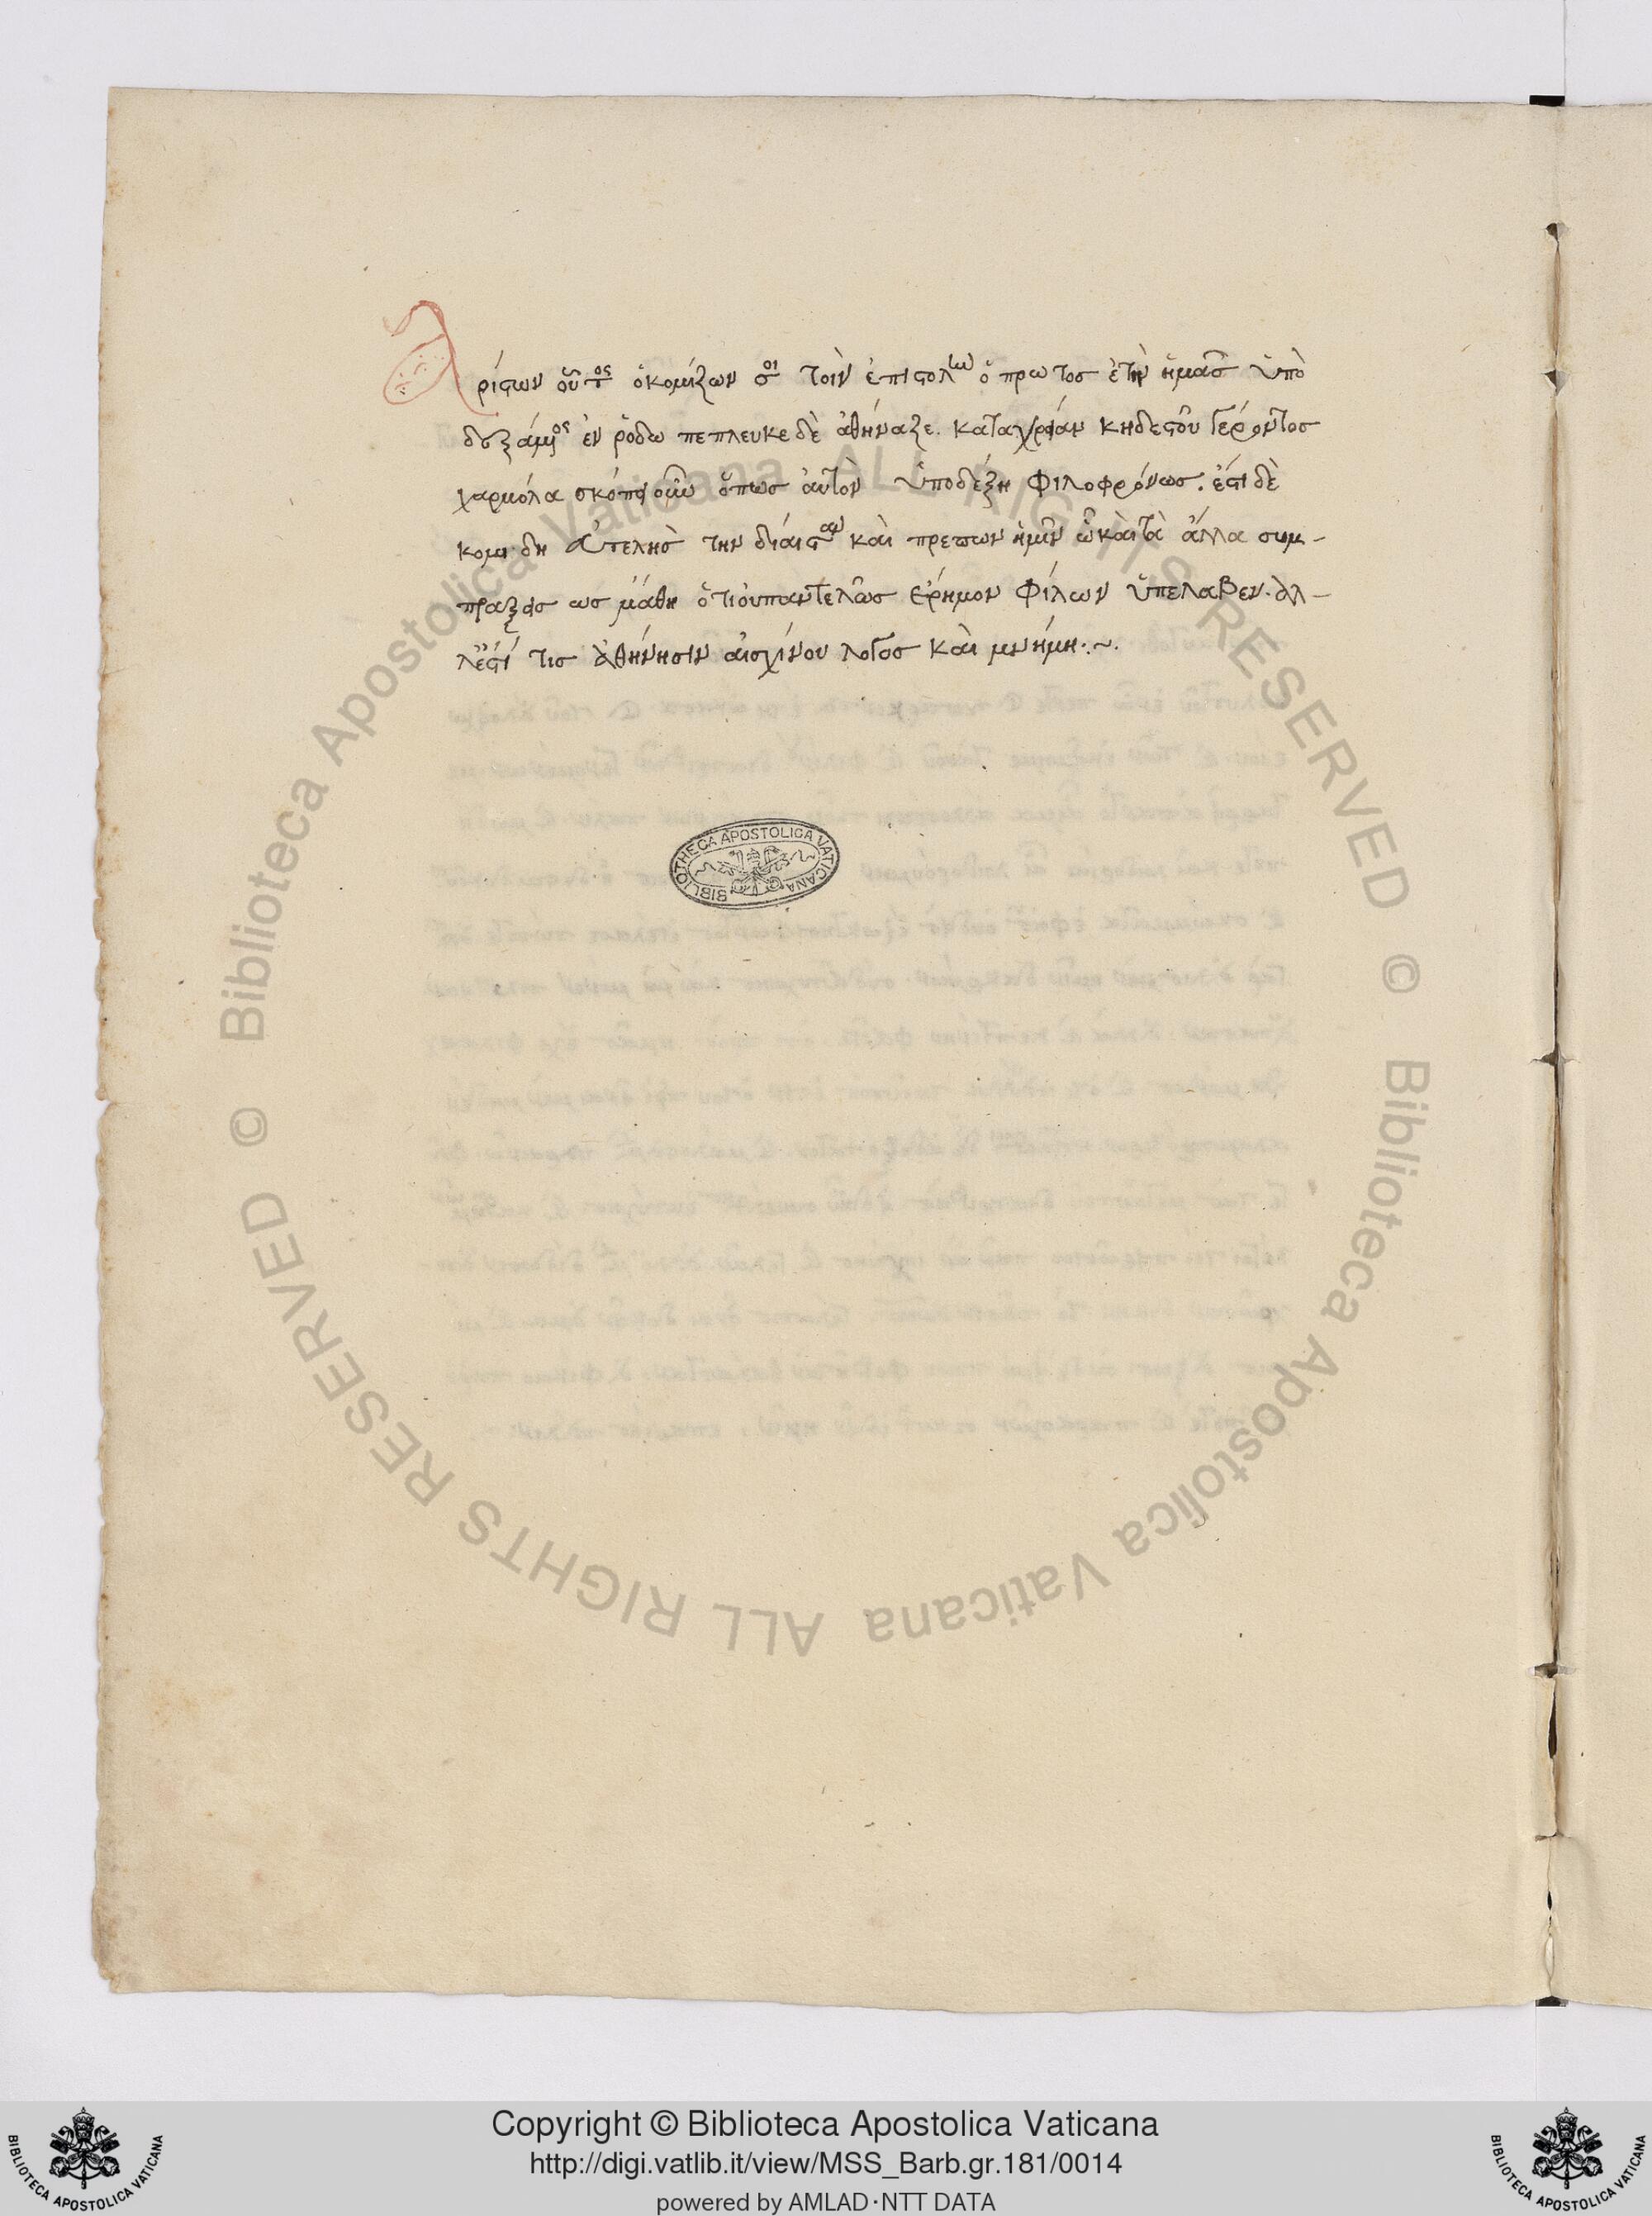 Αρίστων οὗτος ὁκομίζων σοι τοὶν ἐπιστολὴν ὁ πρωτος ἐτὴν ἡμᾶσ ὑπὸ
δεξάμενος ἐν ῥόδω πεπλευκε δὲ ἀθήναζε. καταχρείαν κηδεστοῦ γέροντοσ
χαρμόλα σκόπει οὖν ὅπωσ ἀυτὸν ὑποδέξη φιλοφρόνωσ. ἐστι δὲ
κομιδη ἀτελὴσ την δίαιταν καὶ πρεπων ἡμῖν ὧκὰιτὰ ἄλλα συμ-
πραξεισ ωσ μάθη ὅτιουπαντελῶσ ἐρήμον φίλων ὑπελαβεν. ἀλ-
λἔστί τισ ἀθήνησιν αἰσχίνου λογοσ καὶ μνήμη:~.
BIBLIOTHECA APOSTOLICA VATICANA
© Biblioteca Apostolica Vaticana ALL RIGHTS RESERVED
© Biblioteca Apostolica Vaticana ALL RIGHTS RESERVED
Copyright © Biblioteca Apostolica Vaticana
http://digi.vatlib.it/view/MSS_Barb.gr.181/0014
powered by AMLAD·NTT DATA
BIBLIOTECA APOSTOLICA VATICANA
BIBLIOTECA APOSTOLICA VATICANA